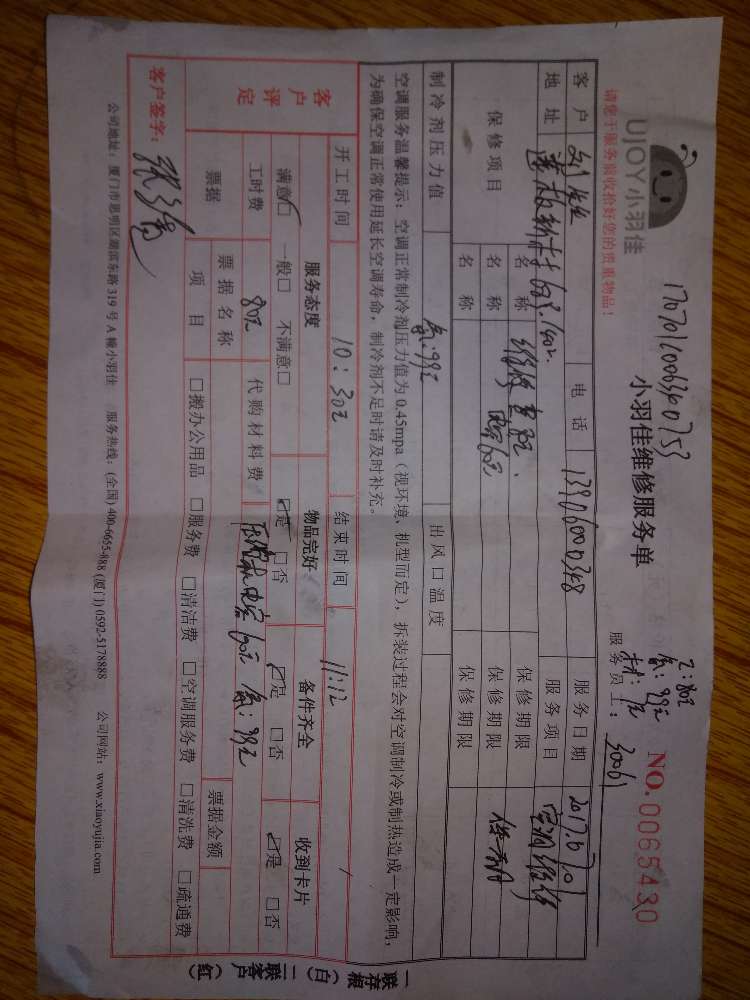 UJOY小羽佳
1707016006340753
小羽佳维修服务单
NO.0065430
请您于服务前收拾好您的贵重物品！
服务员工：30061
客户
电话 13906000348
服务日期
地址
服务项目 空调维修
保修项目
名称
保修期限
名称
保修期限
名称
保修期限
制冷剂压力值
氟:99元
出风口温度
空调服务温馨提示：空调正常制冷剂压力值为0.45mpa（视环境、机型而定），拆装过程会对空调制冷或制热造成一定影响，
为确保空调正常使用延长空调寿命，制冷剂不足时请及时补充。
开工时间 10:30
结束时间 11:12
客户评定
服务态度
物品完好
备件齐全
收到卡片
满意□ 一般□ 不满意□
□是 □否
□是 □否
□是 □否
工时费 80元
代购材料费
电容60元 氟:99元
票据
票据名称
票据金额
项目
□搬办公用品 □服务费 □清洁费 □空调服务费 □清洗费 □疏通费
客户签字：
公司地址：厦门市思明区湖滨东路319号A幢小羽佳 服务热线：(全国) 400-6655-888 (厦门) 0592-5178888 公司网站：www.xiaoyujia.com
一联存根（白） 二联客户（红）